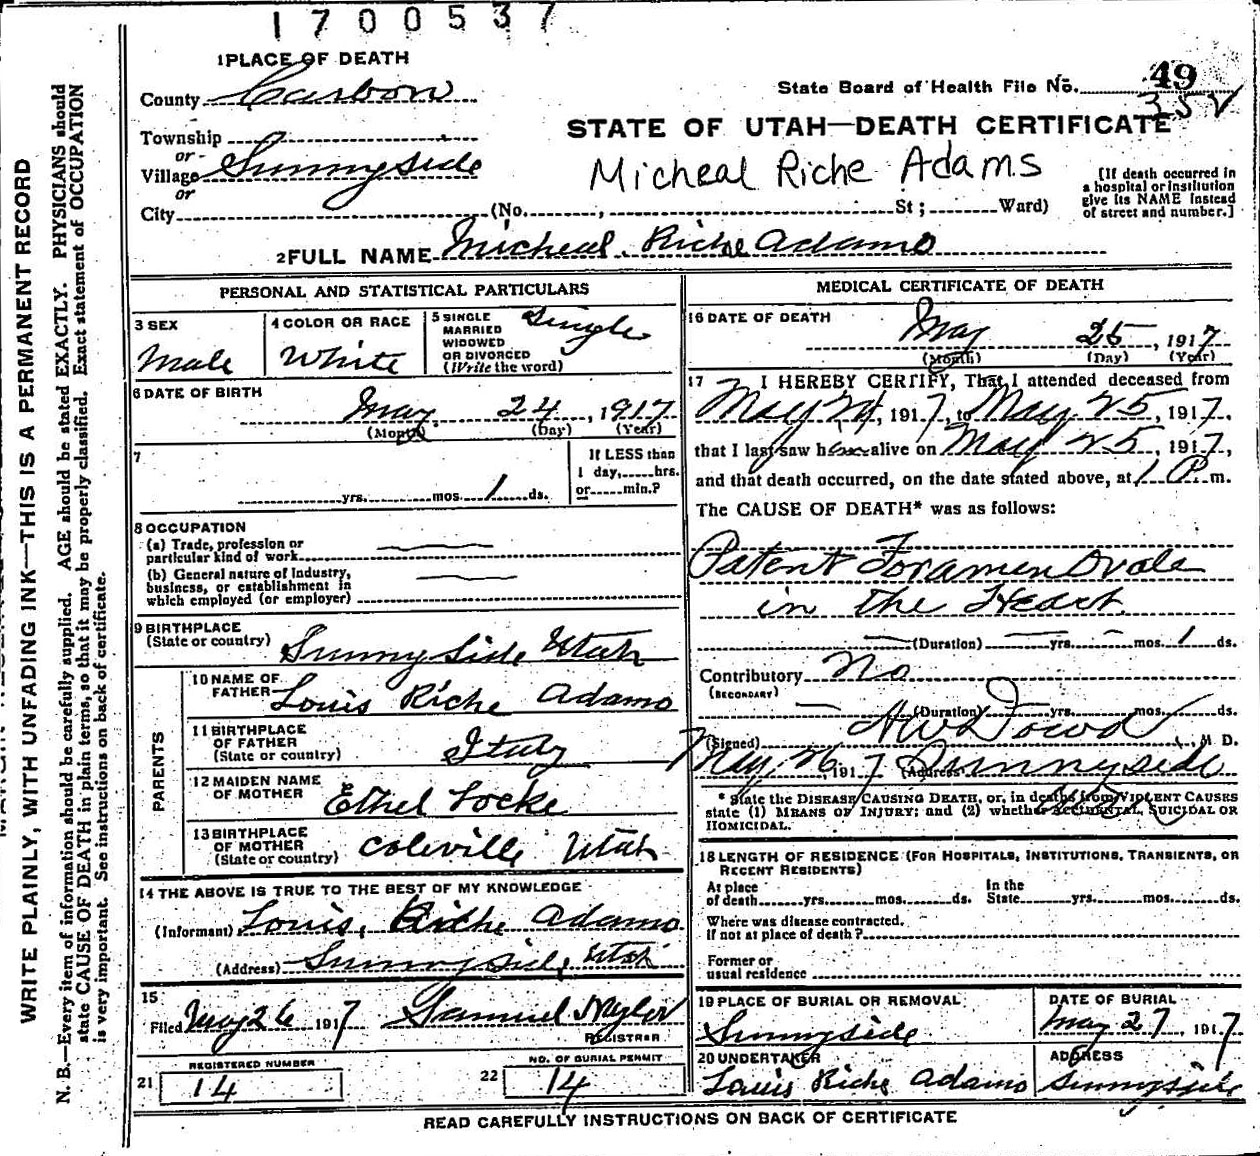 1700537
1 PLACE OF DEATH
County Carbon
State Board of Health File No. 49
35
Township
STATE OF UTAH—DEATH CERTIFICATE
or
Village Sunnyside
Micheal Riche Adams
or
City (No. , St; Ward)
[If death occurred in
a hospital or institution
give its NAME instead
of street and number.]
2 FULL NAME Micheal Riche Adamo
PERSONAL AND STATISTICAL PARTICULARS
3 SEX
Male
4 COLOR OR RACE
White
5 SINGLE
MARRIED
WIDOWED
OR DIVORCED
(Write the word)
Single
6 DATE OF BIRTH
May 24, 1917
(Month) (Day) (Year)
7
yrs. mos. 1 ds.
If LESS than
1 day, hrs.
or min.?
8 OCCUPATION
(a) Trade, profession or
particular kind of work
(b) General nature of Industry,
business, or establishment in
which employed (or employer)
9 BIRTHPLACE
(State or country) Sunnyside Utah
PARENTS
10 NAME OF
FATHER Louis Riche Adamo
11 BIRTHPLACE
OF FATHER
(State or country) Italy
12 MAIDEN NAME
OF MOTHER Ethel Locke
13 BIRTHPLACE
OF MOTHER
(State or country) Coleville Utah
14 THE ABOVE IS TRUE TO THE BEST OF MY KNOWLEDGE
(Informant) Louis, Riche Adamo
(Address) Sunnyside Utah
15
Filed May 26 1917 Samuel Naylor
REGISTRAR
REGISTERED NUMBER
21 14
NO. OF BURIAL PERMIT
22 14
MEDICAL CERTIFICATE OF DEATH
16 DATE OF DEATH
May 25, 1917
(Month) (Day) (Year)
17 I HEREBY CERTIFY, That I attended deceased from
May 24, 1917, to May 25, 1917,
that I last saw h alive on May 25, 1917,
and that death occurred, on the date stated above, at 1 P. m.
The CAUSE OF DEATH* was as follows:
Patent Foramen Ovale
in the Heart
(Duration) yrs. mos. 1 ds.
Contributory No
(SECONDARY)
(Duration) yrs. mos. ds.
(Signed) H W Dowd M D.
May 26, 1917 (Address) Sunnyside
* State the DISEASE CAUSING DEATH, or, in deaths from VIOLENT CAUSES
state (1) MEANS OF INJURY; and (2) whether ACCIDENTAL, SUICIDAL OR
HOMICIDAL.
18 LENGTH OF RESIDENCE (FOR HOSPITALS, INSTITUTIONS, TRANSIENTS, OR
RECENT RESIDENTS)
At place
of death yrs. mos. ds.
In the
State yrs. mos. ds.
Where was disease contracted.
If not at place of death?
Former or
usual residence
19 PLACE OF BURIAL OR REMOVAL
Sunnyside
DATE OF BURIAL
May 27, 1917
20 UNDERTAKER
Louis Riche Adamo
ADDRESS
Sunnyside
READ CAREFULLY INSTRUCTIONS ON BACK OF CERTIFICATE
WRITE PLAINLY, WITH UNFADING INK—THIS IS A PERMANENT RECORD
N. B.—Every item of information should be carefully supplied. AGE should be stated EXACTLY. PHYSICIANS should
state CAUSE OF DEATH in plain terms, so that it may be properly classified. Exact statement of OCCUPATION
is very important. See instructions on back of certificate.